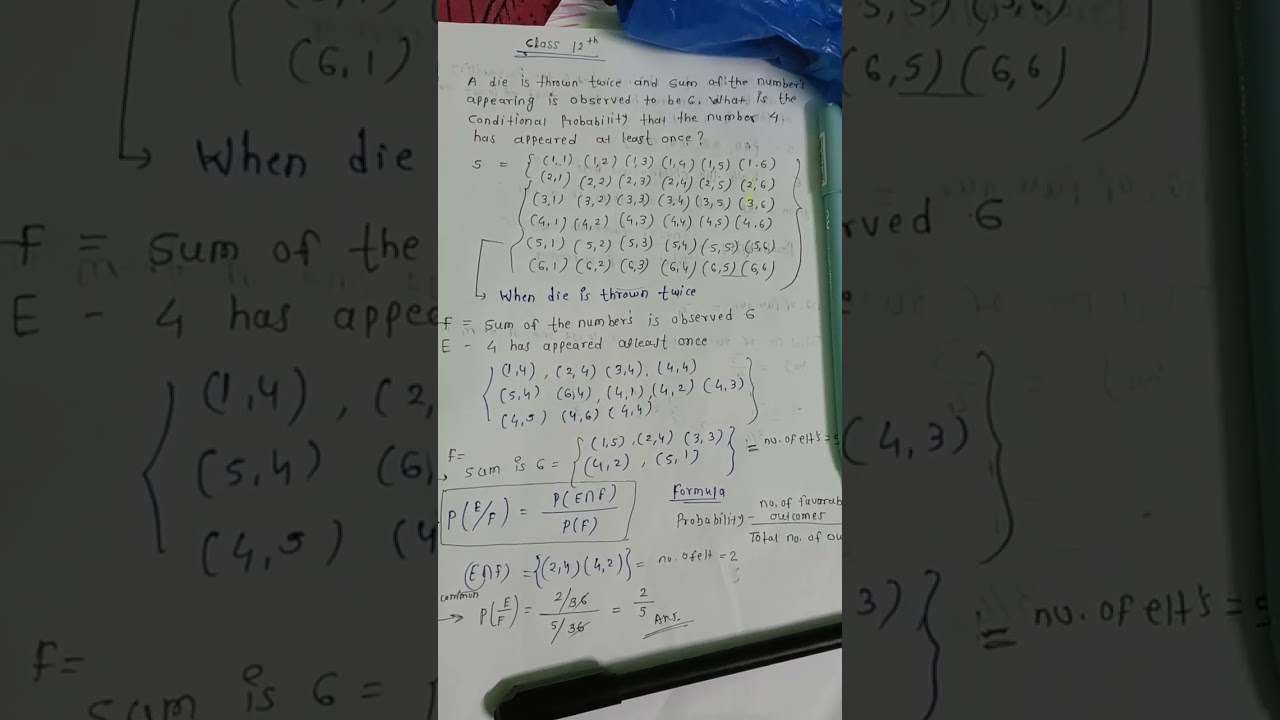 Class 12th
A die is thrown twice and sum of the number's
appearing is observed to be 6. What is the
conditional Probability that the number 4
has appeared at least once?
S = { (1,1) (1,2) (1,3) (1,4) (1,5) (1,6)
(2,1) (2,2) (2,3) (2,4) (2,5) (2,6)
(3,1) (3,2) (3,3) (3,4) (3,5) (3,6)
(4,1) (4,2) (4,3) (4,4) (4,5) (4,6)
(5,1) (5,2) (5,3) (5,4) (5,5) (5,6)
(6,1) (6,2) (6,3) (6,4) (6,5) (6,6) }
→ When die is thrown twice
F = Sum of the number's is observed 6
E - 4 has appeared atleast once
{ (1,4), (2,4) (3,4), (4,4)
(5,4) (6,4), (4,1), (4,2) (4,3)
(4,5) (4,6) (4,4) }
F=
→ sum is 6 = { (1,5), (2,4) (3,3)
(4,2), (5,1) } = no. of elt's = 5
P(E/F) = P(E∩F) / P(F)
Formula
Probability - no. of favorab
outcomes
Total no. of ou
(E∩F) = {(2,4) (4,2)} = no. of elt = 2
common
→ P(E/F) = 2/36 / 5/36 = 2/5 Ans.